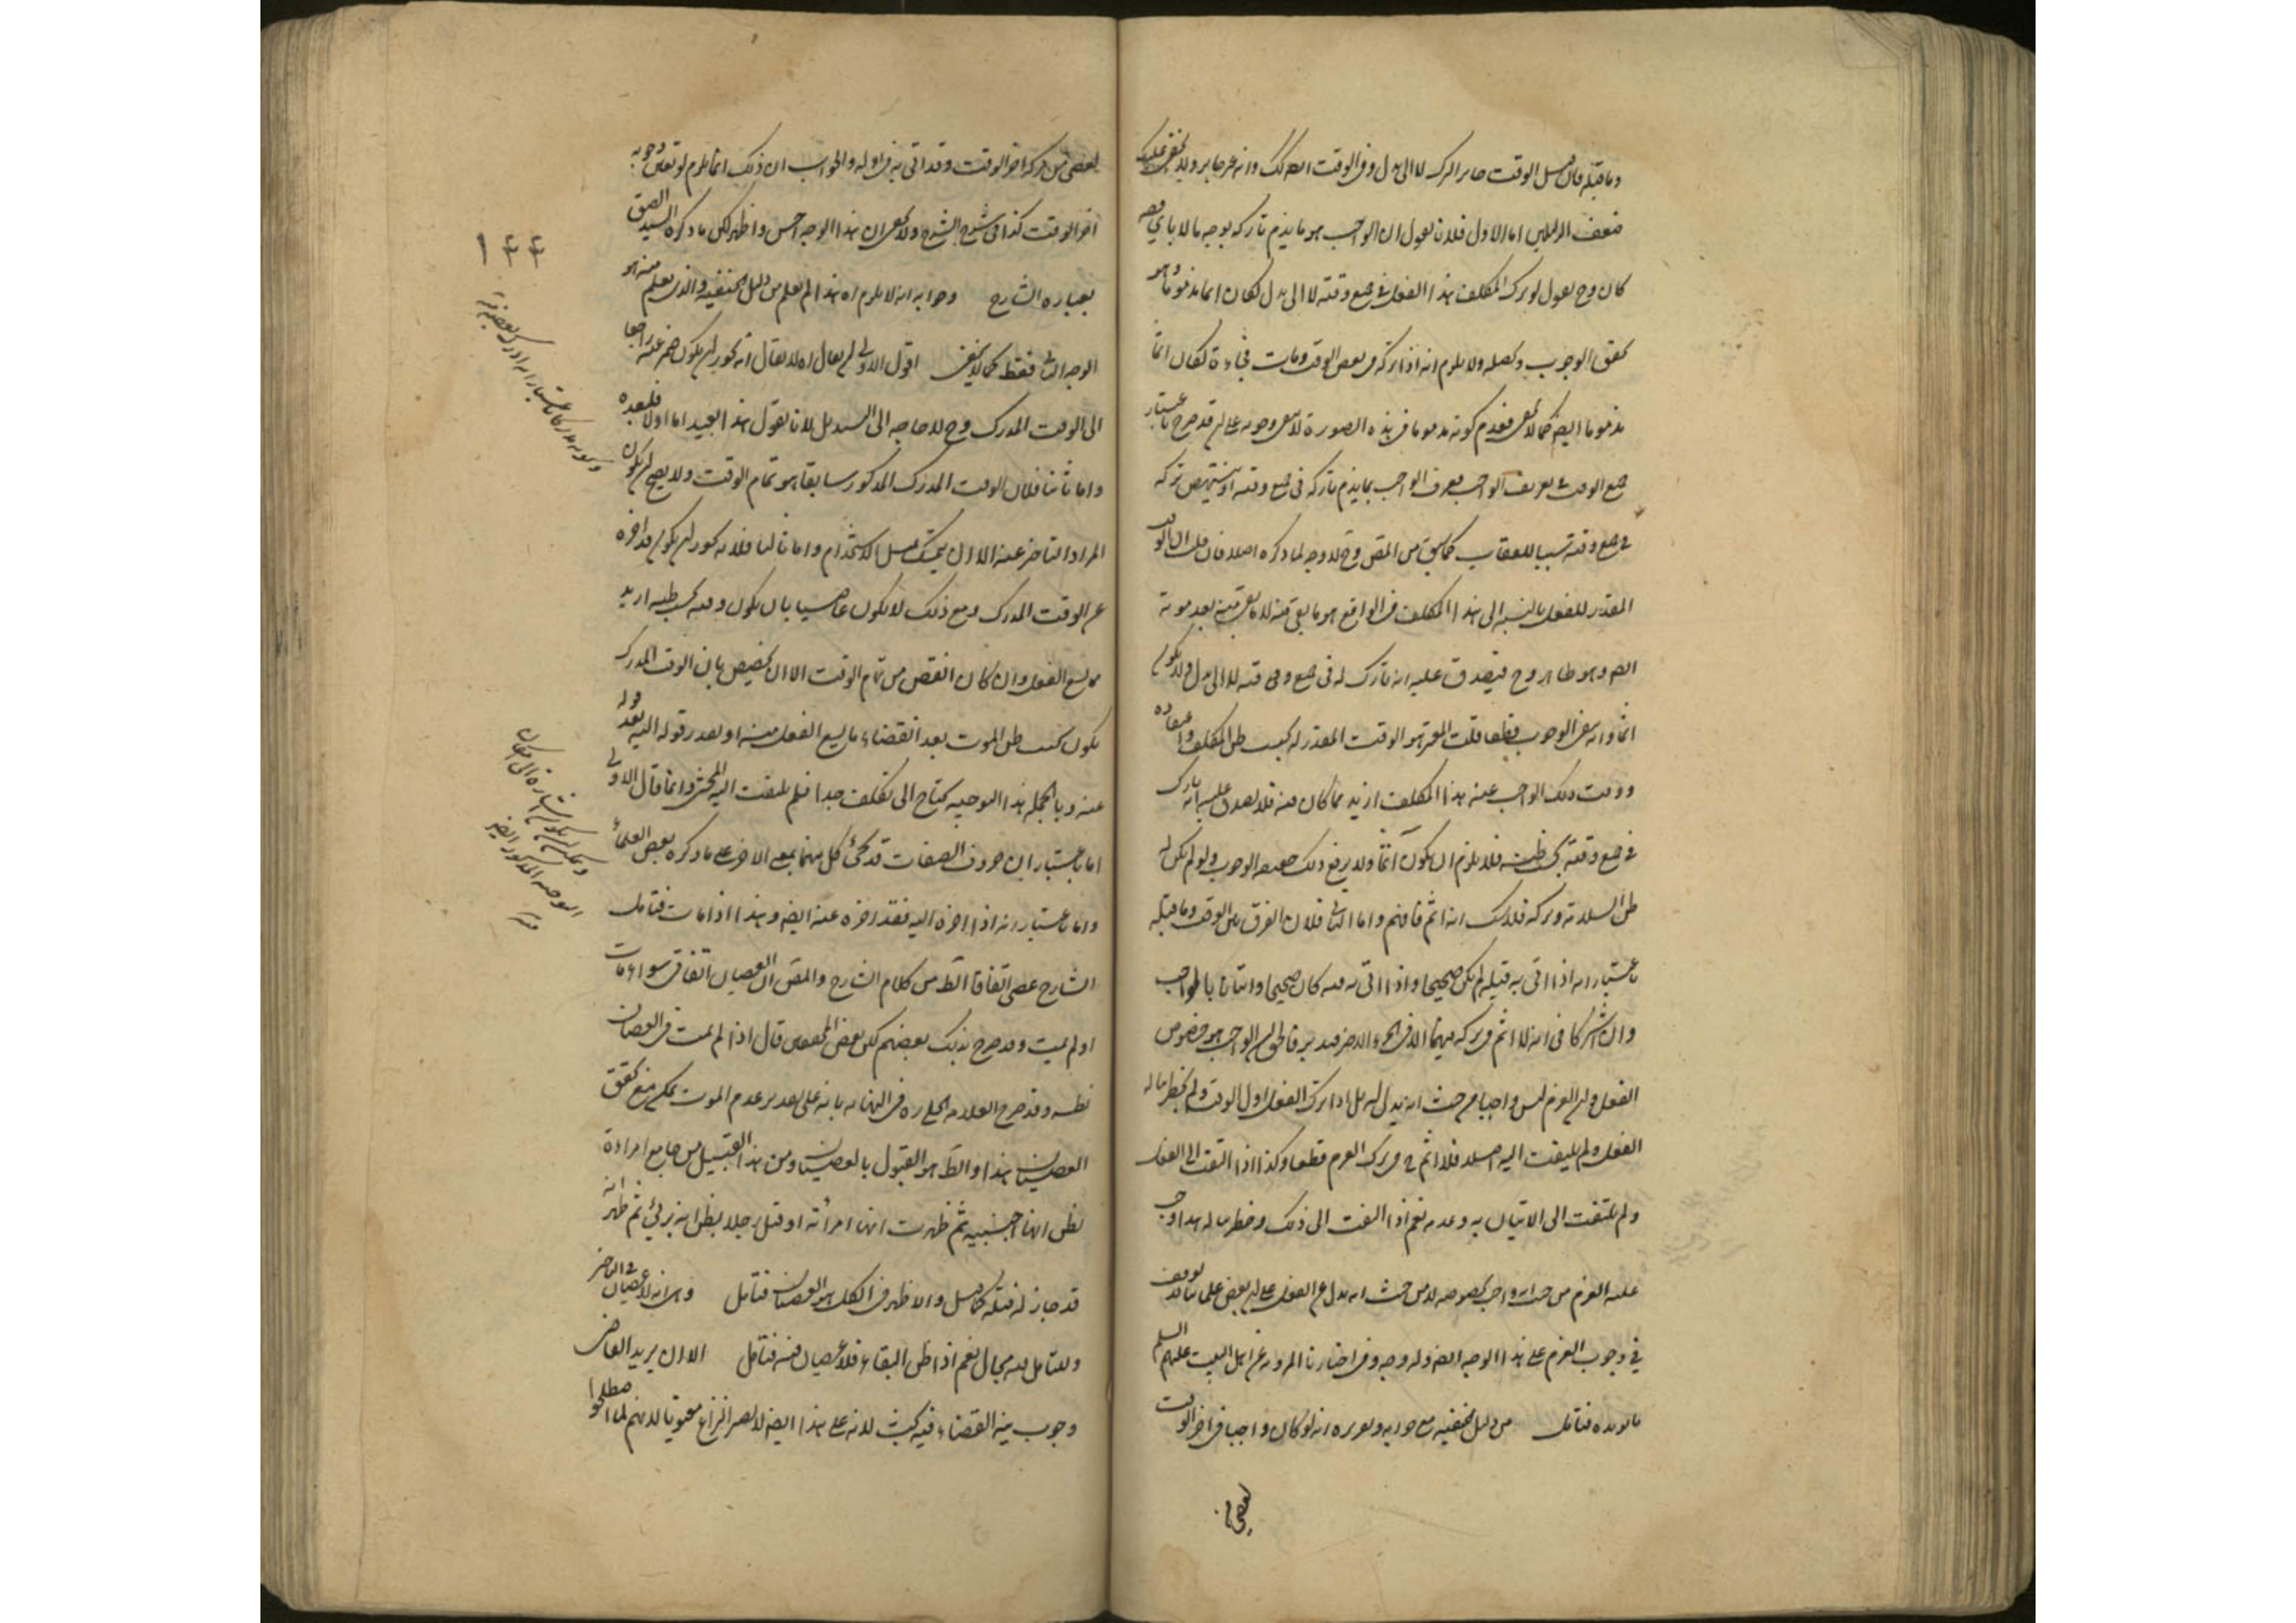 وما قبله فان قبل الوقت جاز الترك لا الى بدل وفى الوقت ايضا كك وانه غير جايز ولا يخفى عليك
ضعف الدليلين اما الاول فلانا نقول ان الواجب هو ما يذم تاركه بوجه ما لا باى وجه
كان وح نقول لو ترك المكلف هذا الفعل فى جميع وقته لا الى بدل لكان اثما مذموما وهو
تحقق الوجوب ولا يلزم انه اذا تركه فى بعض الوقت ومات فجاءة لكان اثما
مذموما ايضا كما لا يخفى فعدم كونه مذموما فى هذه الصورة لا ينفى وجوبه على انه قد صرح باعتبار
جميع الوقت فى تعريف الواجب معرف الواجب بما يذم تاركه فى جميع وقته او ينتهض تركه
فى جميع وقته سببا للعقاب كما سبق من المصنف وح لا وجه لما ذكره اصلا فان قلت ان الوقت
المقدر للفعل بالنسبة الى هذا المكلف فى الواقع هو ما بقى منه لا ما بقى منه بعد موته
ايضا وهو ظاهر وح فيصدق عليه انه تارك له فى جميع وقته لا الى بدل ولا يكون
اثما وانه ينفى الوجوب قطعا قلت المعتبر هو الوقت المقدر له بحسب ظن المكلف واعتقاده
ووقت ذلك الواجب عند هذا المكلف ازيد مما كان فيه فلا يصدق عليه انه تارك
فى جميع وقته بحسب ظنه فلا يلزم ان يكون آثما ولا يرفع ذلك حقيقة الوجوب ولو لم يكن له
ظن السلامة وتركه فلا شك انه اثم فافهم واما الثانى فلان الفرق بين الوقت وما قبله
باعتبار انه اذا اتى به قبله لم يكن صحيحا واذا اتى به فيه كان صحيحا واتيانا بالواجب
وان اشتركا فى انه لا اثم فى تركه فيهما الا فى الجزء الاخير فتدبر فالحق ان الواجب هو خصوص
الفعل وان العزم ليس واجبا من حيث انه بدل له بل اذا ترك الفعل اول الوقت ولم يخطر بباله
الفعل ولم يلتفت اليه اصلا فلا اثم فى ترك العزم قطعا وكذا اذا التفت الى الفعل
ولم يلتفت الى الاتيان به وعدمه نعم اذا التفت الى ذلك وخطر بباله هذا وجب
عليه العزم من حيث انه واجب بخصوصه لا من حيث انه بدل عن الفعل على ان بعض علمائنا توقف
فى وجوب العزم على هذا الوجه ايضا وله وجه وفى اخبارنا المروية عن اهل البيت عليهم السلم
ما يؤيده فتامل من دليل الحنفيه مع جوابه وتقريره انه لو كان واجبا فى اخر الوقت
لعصى من
لعصى من تركه اخر الوقت وقد اتى به فى اوله والجواب ان ذلك انما يلزم لو تعين وجوبه
اخر الوقت كذا فى شرح الشرح ولا يخفى ان هذا الوجه احسن واظهر لكن ما ذكره السيد الصق
بعبارة الشارح وجوابه انه لا يلزم اه هذا لم يعلم من دليل الحنفيه والذى يعلم منه هو
الوجه الثانى فقط كما لا يخفى اقول الاولى ان يقال اه لا يقال انه يجوز ان يكون ضمير عنه راجعا
الى الوقت المدرك وح لا حاجه الى التبديل لانا نقول هذا بعيد اما اولا فلبعده
واما ثانيا فلان الوقت المدرك المذكور سابقا هو تمام الوقت ولا يصح ان يكون
المراد التاخير عنه الا ان يتمسك بمثل الاستخدام واما ثالثا فلانه يجوز ان يكون قد اخره
عن الوقت المدرك ومع ذلك لا يكون عاصيا بان يكون وقته بحسب ظنه ازيد
مما يسع الفعل وان كان انقص من تمام الوقت الا ان يخصص بان الوقت المدرك
يكون بحسب ظن الموت بعد انقضاء ما يسع الفعل منه او بعد قوله اليه بعد قوله
عنه وبالجملة هذا التوجيه يحتاج الى تكلف جدا فلم يلتفت اليه المحشى وانما قال الاولى
اما باعتبار ان حروف الصفات قد يجئ كل منهما بمعنى الاخر على ما ذكره بعض العلماء
واما باعتبار انه اذا اخره اليه فقد اخره عنه ايضا وهذا اذا مات فتامل
الشارح عصى اتفاقا الظ من كلام الشارح والمصنف ان العصيان اتفاقى سواء مات
او لم يمت وقد صرح بذلك بعضهم لكن بعض المحققين قال اذا لم يمت ففى العصيان
نظر وقد صرح العلامه الحلى ره فى النهايه بانه على تقدير عدم الموت يمكن منع تحقق
العصيان هذا والظ هو القبول بالعصيان ومن هذا القبيل من جامع امراة
بظن انها اجنبيه ثم ظهرت انها امرأته او قتل رجلا بظن انه برئ ثم ظهر انه
قد جاز له قتله كما قيل والاظهر فى الكل هو العصيان فتامل وهى انه لا عصيان فى التاخير
وللتامل فيه مجال نعم اذا ظن البقاء فلا عصيان فيه فتامل الا ان يريد القاضى
وجوب نية القضاء فيه بحث لانه على هذا ايضا لا يصير النزاع معنويا لانهم لما اصطلحوا
١٣٣